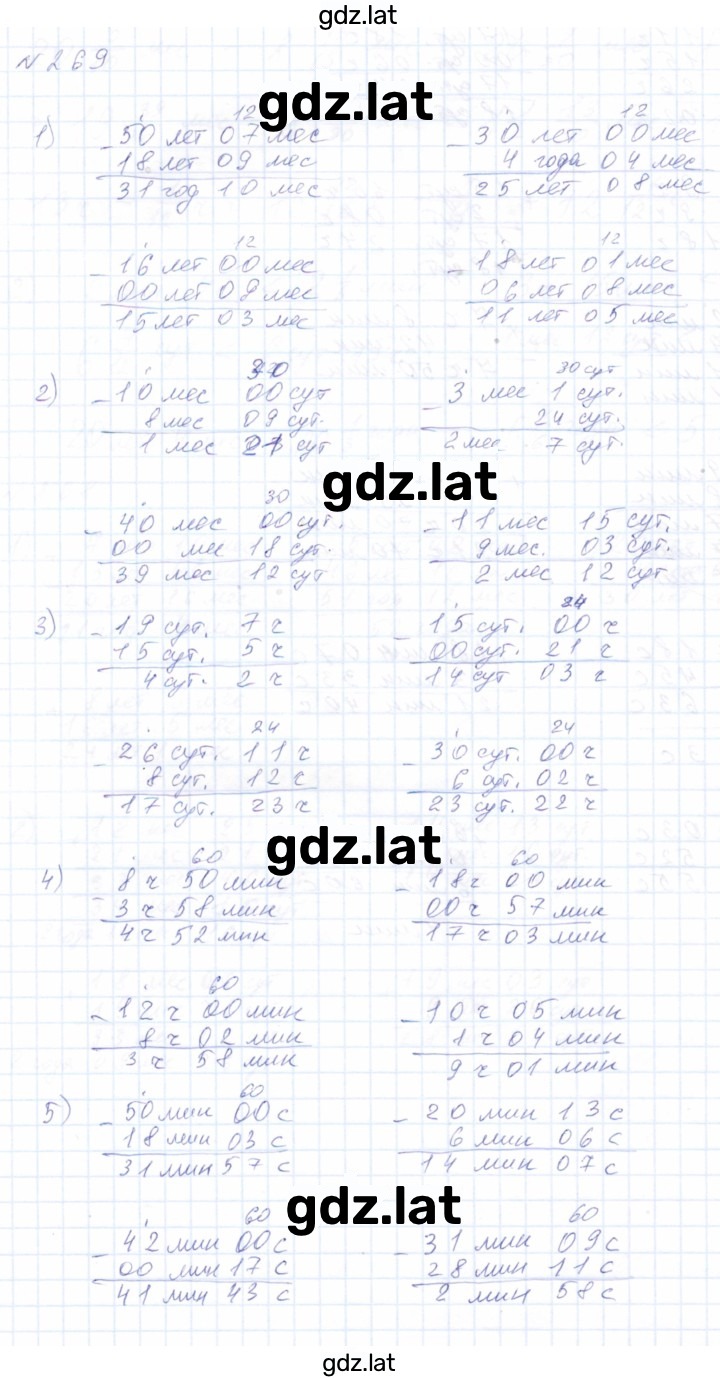 gdz.lat
№ 269
gdz.lat
12 12
1) - 50 лет 07 мес - 30 лет 00 мес
18 лет 09 мес 4 года 04 мес
31 год 10 мес 25 лет 08 мес
12 12
- 16 лет 00 мес - 18 лет 01 мес
00 лет 09 мес 06 лет 08 мес
15 лет 03 мес 11 лет 05 мес
30 30 сут
2) - 10 мес 00 сут - 3 мес 1 сут.
8 мес 09 сут. 24 сут.
1 мес 21 сут 2 мес. 7 сут.
gdz.lat
30
- 40 мес 00 сут. - 11 мес 15 сут.
00 мес 18 сут. 9 мес. 03 сут.
39 мес 12 сут 2 мес 12 сут
24
3) - 19 сут. 7 ч - 15 сут. 00 ч
15 сут. 5 ч 00 сут. 21 ч
4 сут. 2 ч 14 сут 03 ч
24 24
- 26 сут. 11 ч - 30 сут. 00 ч
8 сут. 12 ч 6 сут. 02 ч
17 сут. 23 ч 23 сут. 22 ч
gdz.lat
60 60
4) - 8 ч 50 мин - 18 ч 00 мин
3 ч 58 мин 00 ч 57 мин
4 ч 52 мин 17 ч 03 мин
60
- 12 ч 00 мин - 10 ч 05 мин
8 ч 02 мин 1 ч 04 мин
3 ч 58 мин 9 ч 01 мин
60
5) - 50 мин 00 с - 20 мин 13 с
18 мин 03 с 6 мин 06 с
31 мин 57 с 14 мин 07 с
gdz.lat
60 60
- 42 мин 00 с - 31 мин 09 с
00 мин 17 с 28 мин 11 с
41 мин 43 с 2 мин 58 с
gdz.lat